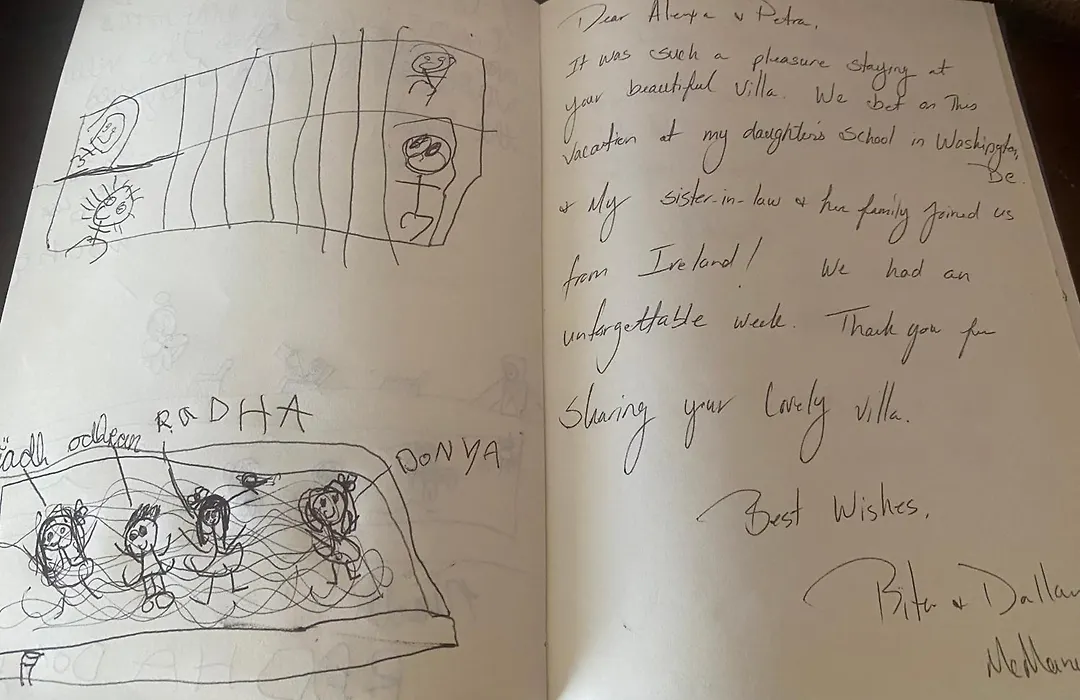 RaDHA
odhran
DONYA
Dear & Petra,
It was such a pleasure staying at
your beautiful Villa. We bet on This
vacation at my daughter's School in Washington,
De.
& My sister-in-law & her family joined us
from Ireland! We had an
unforgettable week. Thank you for
Sharing your lovely villa.
Best Wishes,
&